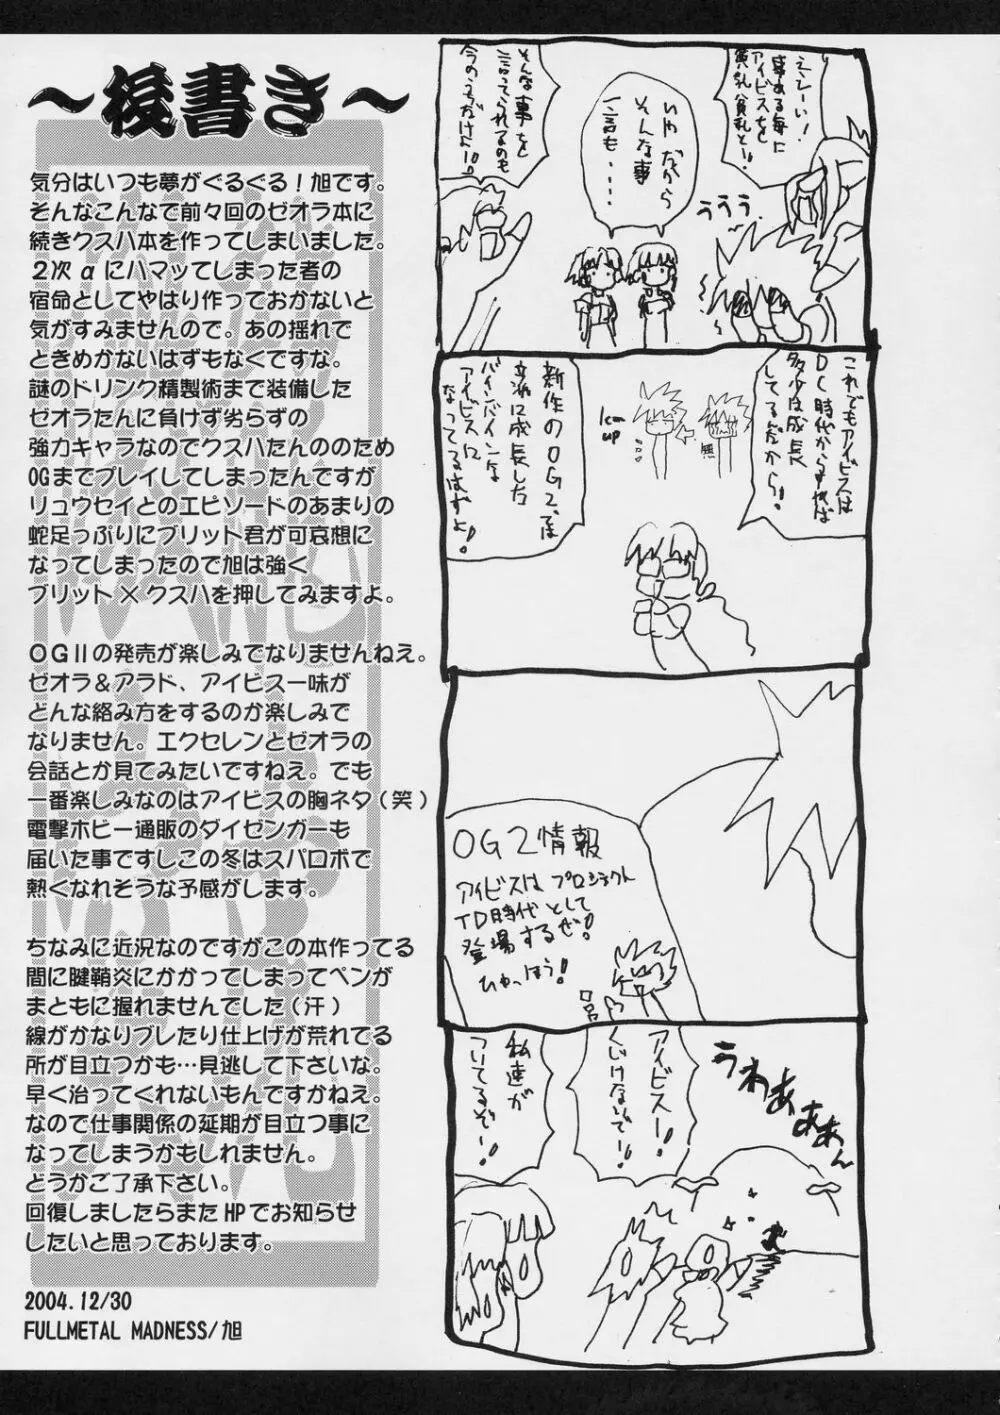 ～後書き～
気分はいつも夢がぐるぐる！旭です。
そんなこんなで前々回のゼオラ本に
続きクスハ本を作ってしまいました。
２次αにハマッてしまった者の
宿命としてやはり作っておかないと
気がすみませんので。あの揺れで
ときめかないはずもなくですな。
謎のドリンク精製術まで装備した
ゼオラたんに負けず劣らずの
強力キャラなのでクスハたんののため
OGまでプレイしてしまったんですが
リュウセイとのエピソードのあまりの
蛇足っぷりにブリット君が可哀想に
なってしまったので旭は強く
ブリット×クスハを押してみますよ。
ＯＧⅡの発売が楽しみでなりませんねえ。
ゼオラ＆アラド、アイビス一味が
どんな絡み方をするのか楽しみで
なりません。エクセレンとゼオラの
会話とか見てみたいですねえ。でも
一番楽しみなのはアイビスの胸ネタ（笑）
電撃ホビー通販のダイゼンガーも
届いた事ですしこの冬はスパロボで
熱くなれそうな予感がします。
ちなみに近況なのですがこの本作ってる
間に腱鞘炎にかかってしまってペンが
まともに握れませんでした（汗）
線がかなりブレたり仕上げが荒れてる
所が目立つかも…見逃して下さいな。
早く治ってくれないもんですかねえ。
なので仕事関係の延期が目立つ事に
なってしまうかもしれません。
どうかご了承下さい。
回復しましたらまたHPでお知らせ
したいと思っております。
2004.12/30
FULLMETAL MADNESS/旭
ええーい！
事ある毎に
アイビスを
貧乳貧乳と！！
いやだから
そんな事
一言も・・・・
ううう
そんな事を
言ってられるのも
今のうちだけよ！！
これでもアイビスは
DC時代からすれば
多少は成長
してるんだから！
無
1cm
up
新作のOG2では
立派に成長した
バインバインな
アイビスに
なってるはずよ！
OG2情報
アイビスはプロジェクト
TD時代として
登場するぜ！
ひゃっほう！
うわあぁあぁん
アイビスー！
くじけないでー！
私達が
ついてるぞー！